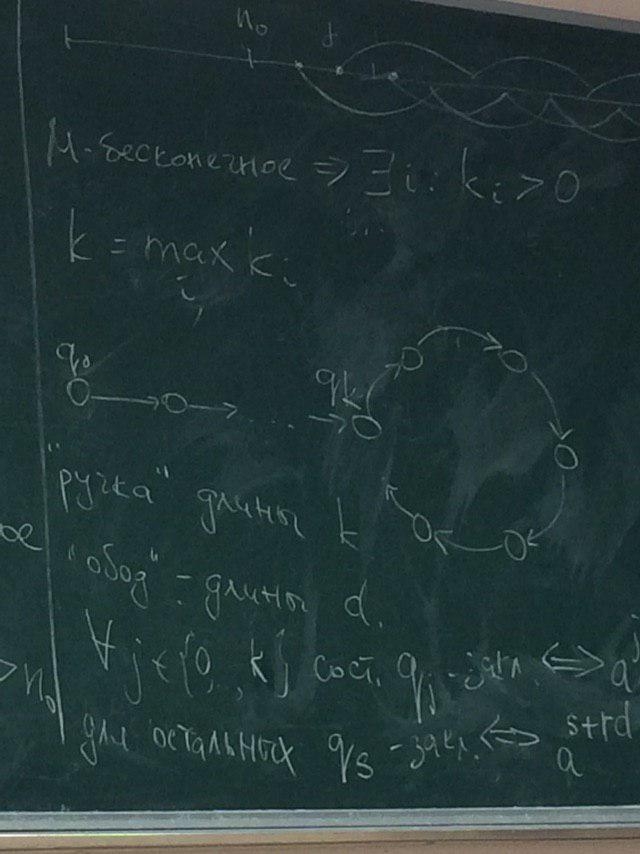 n₀ d
M - бесконечное ⇒ ∃ i : kᵢ > 0
k = max kᵢ
i
q₀ qₖ
... 
"ручка" длины k
ое
"обод" - длины d.
∀ j ∈ {0,..,k} сост. qⱼ - закл. ⇔ aʲ
> n₀
для остальных qₛ - закл. ⇔ aˢ⁺ʳᵈ